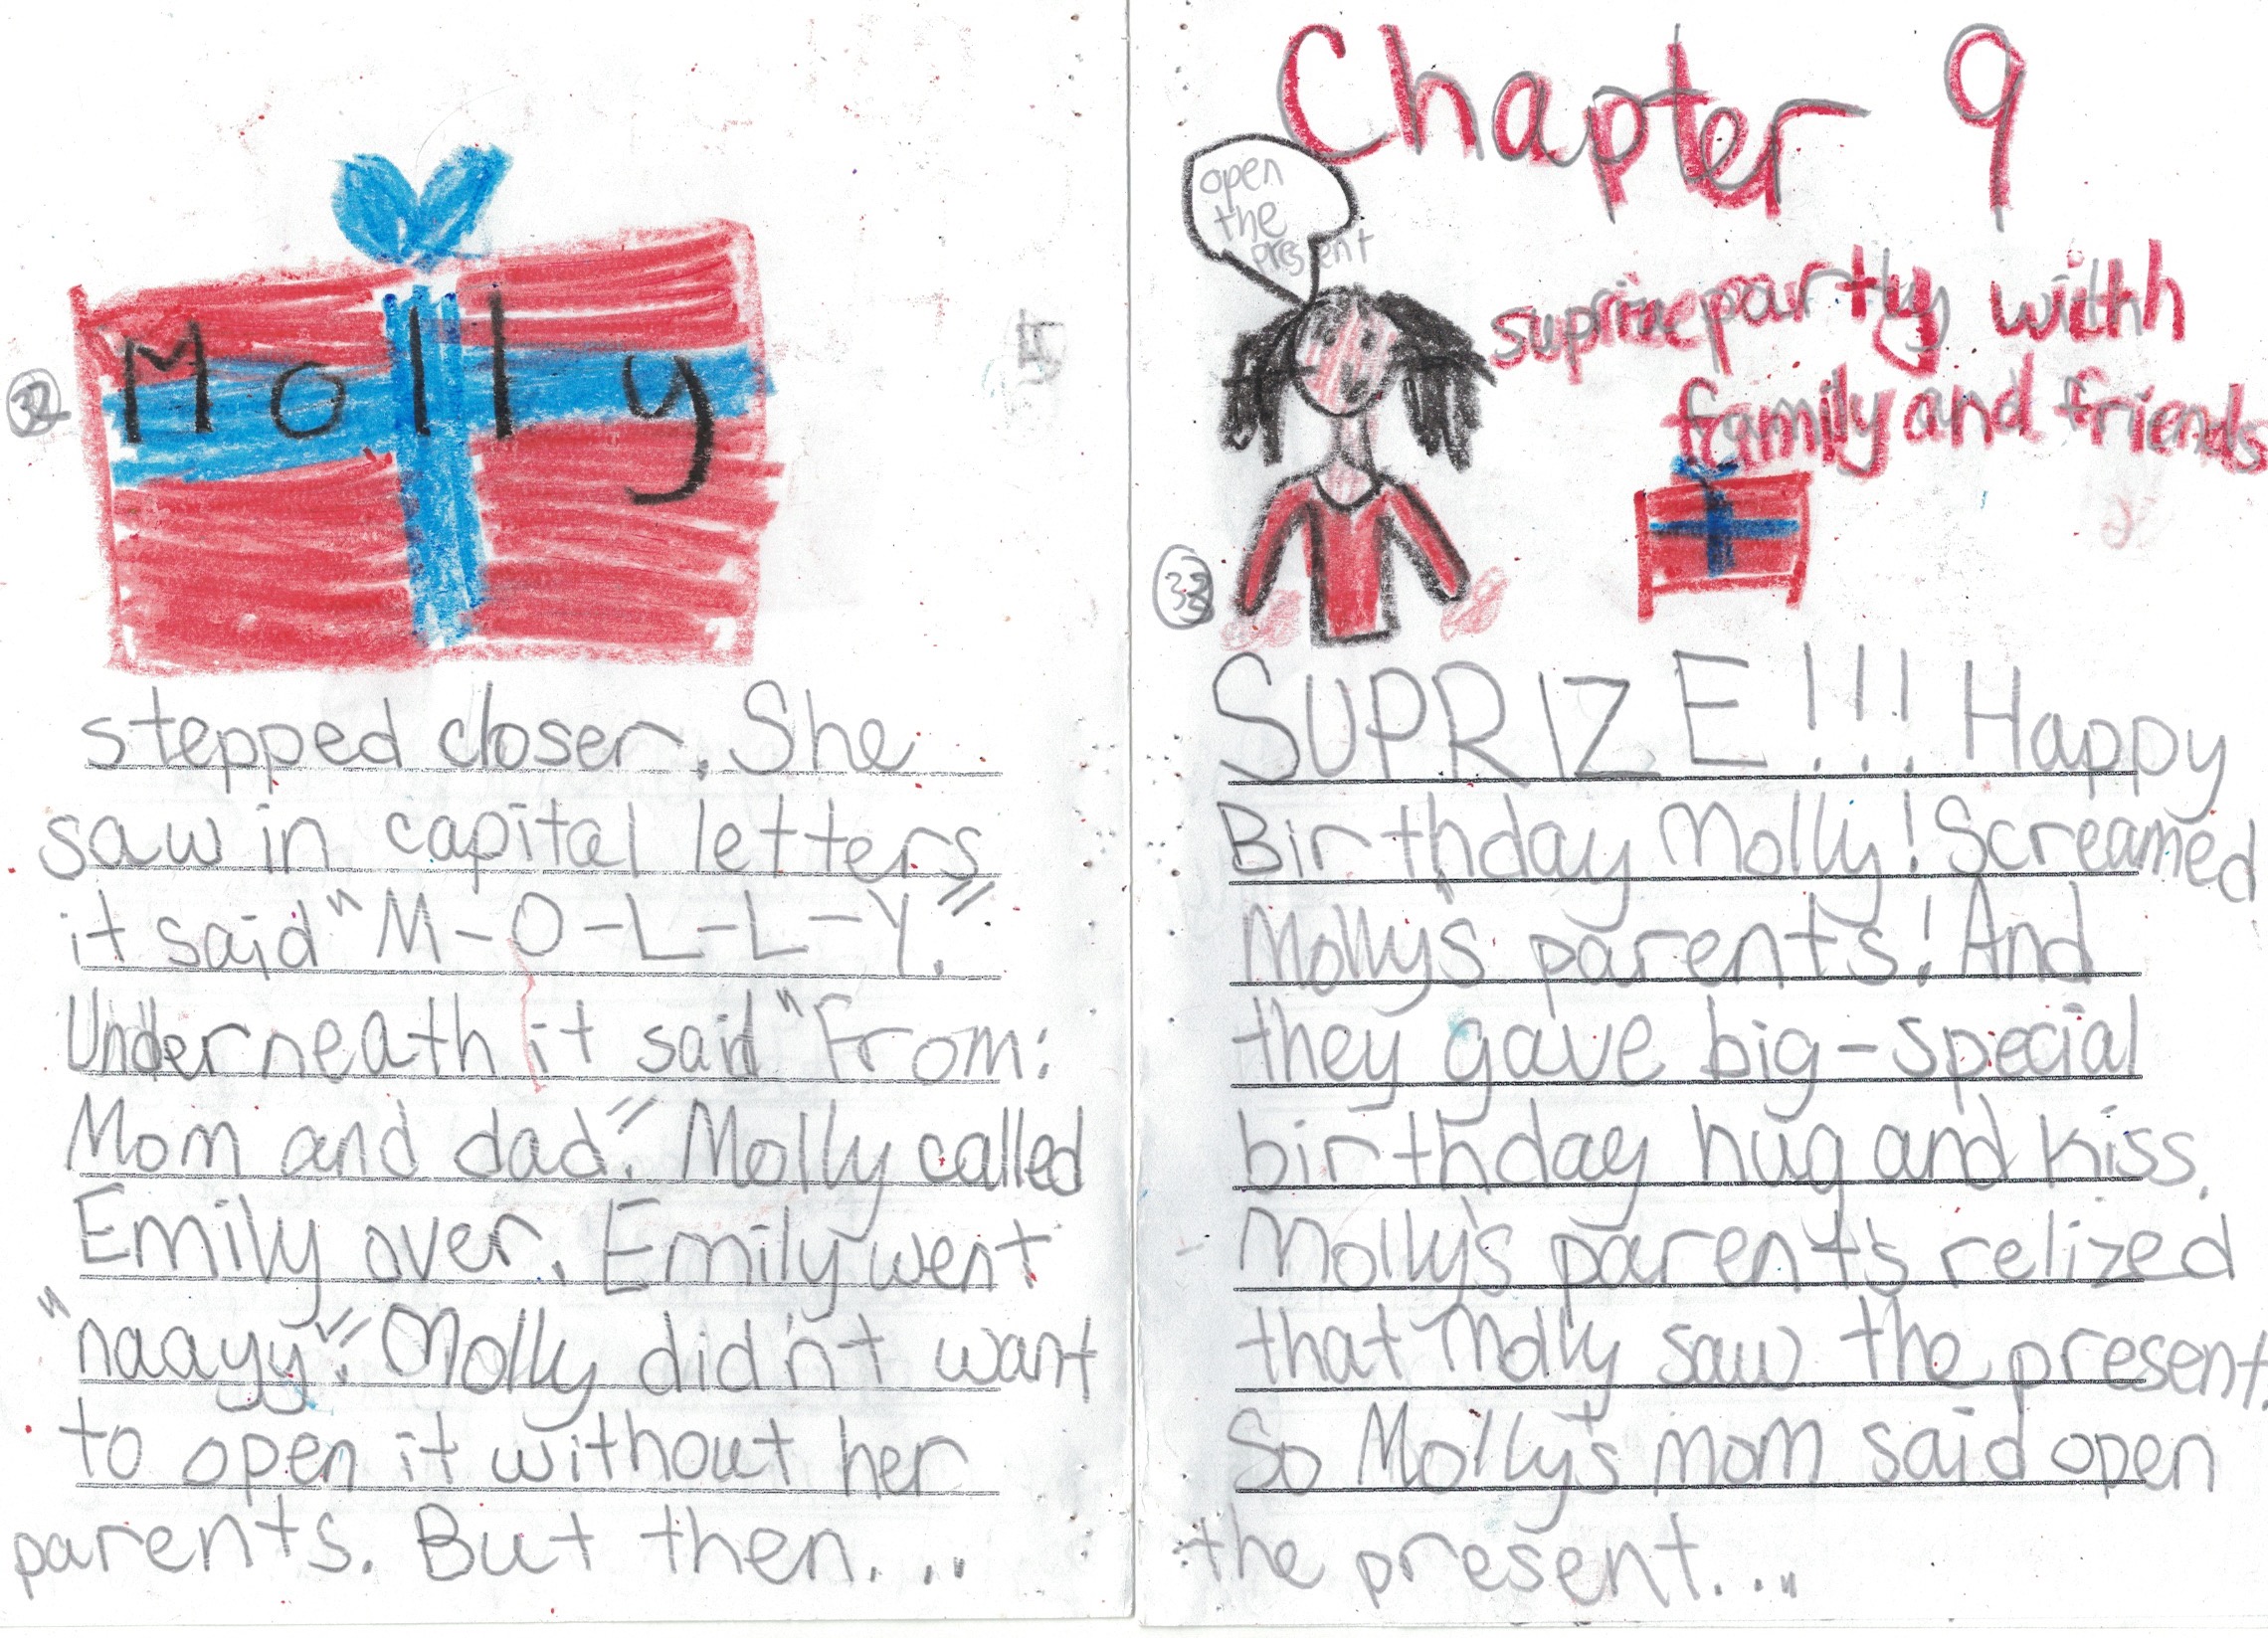 32
Molly
stepped closer. She
saw in capital letters
it said "M-O-L-L-Y."
Underneath it said "From:
Mom and dad". Molly called
Emily over. Emily went
"naayy". Molly didn't want
to open it without her
parents. But then...
Chapter 9
open
the
present
suprize party with
family and friends
33
SUPRIZE!!! Happy
Birthday Molly! Screamed
Molly's parents! And
they gave big-special
birthday hug and kiss.
Molly's parent's relized
that Molly saw the present.
So Molly's mom said open
the present..."